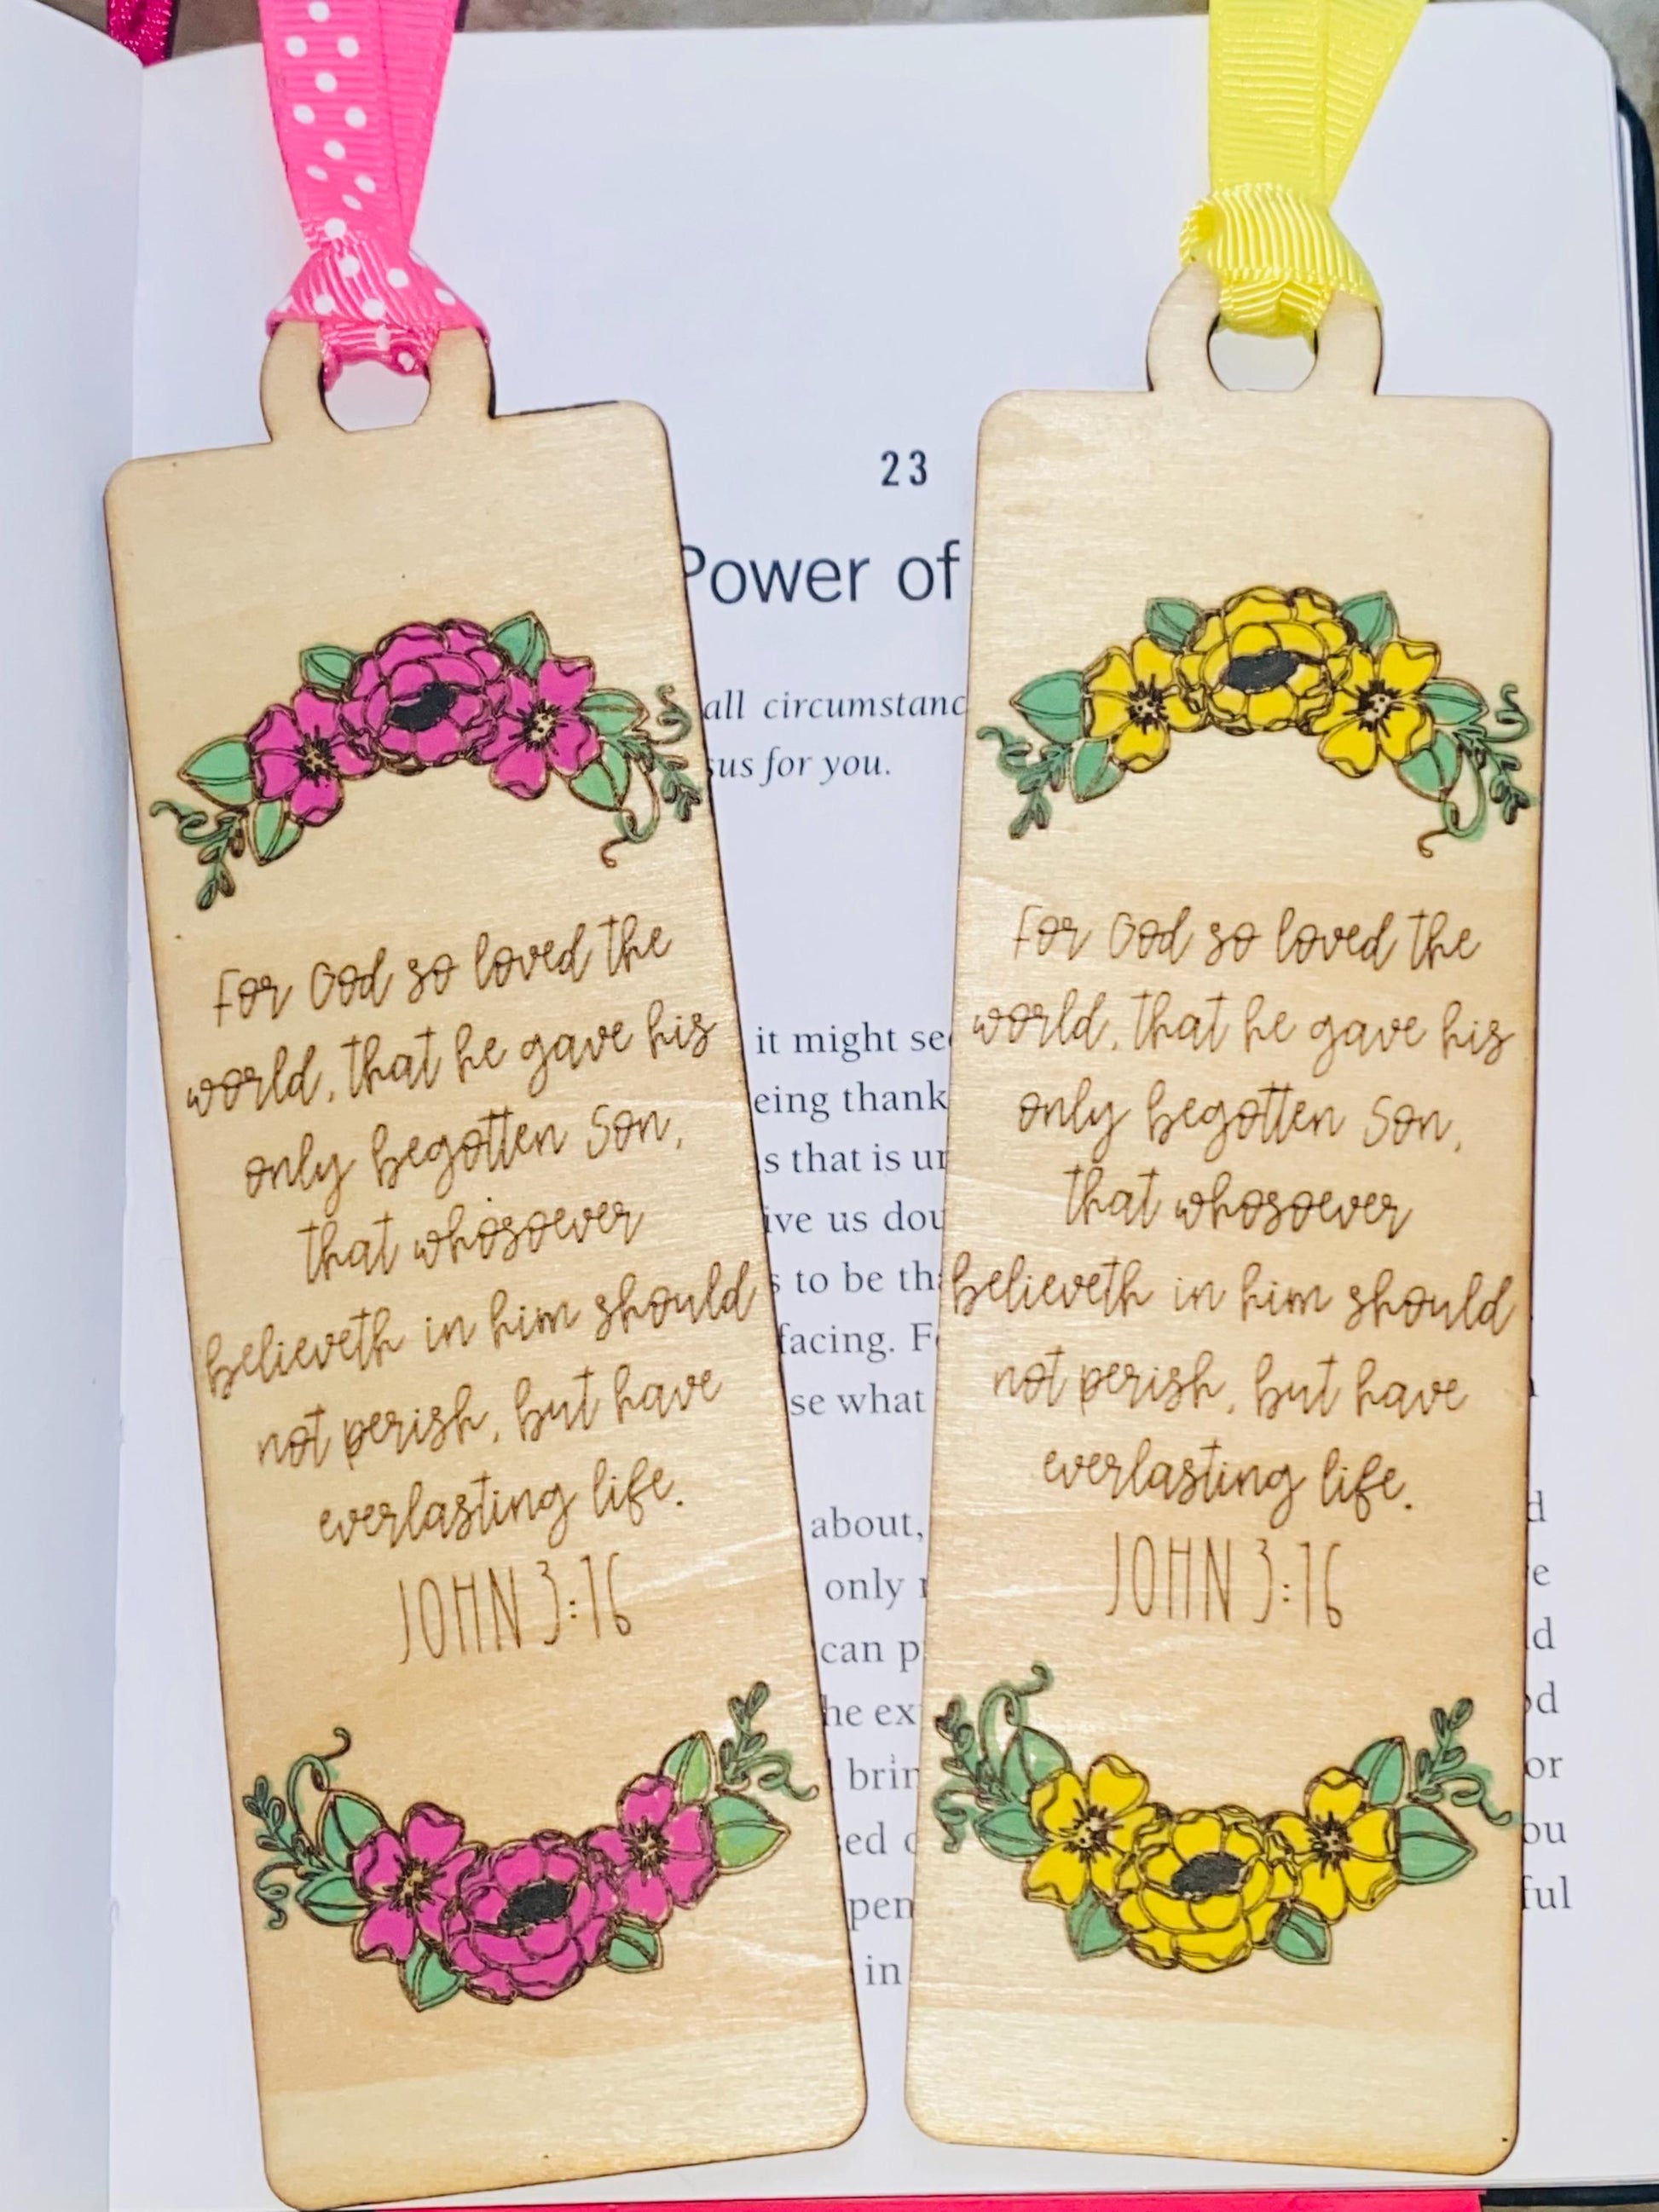 For God so loved the
world, that he gave his
only begotten Son,
that whosoever
believeth in him should
not perish, but have
everlasting life.
JOHN 3:16
For God so loved the
world, that he gave his
only begotten Son,
that whosoever
believeth in him should
not perish, but have
everlasting life.
JOHN 3:16
23
Power of
all circumstanc
sus for you.
it might se
eing thank
s that is un
ive us dou
s to be tha
facing. Fo
se what
about,
only
can p
he ex
brin
sed
pen
in